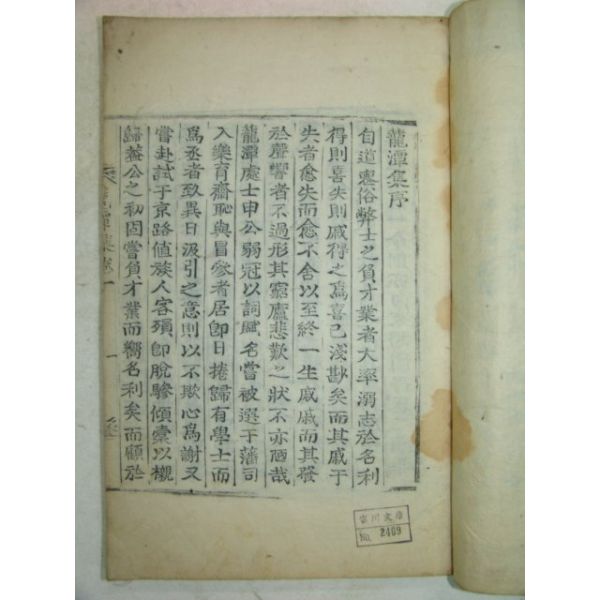 龍潭集序
自道喪俗弊士之負才業者大率溺志於名利
得則喜失則戚得之爲喜已淺尠矣而其戚于
失者愈失而愈不舍以至終一生戚戚而其發
於聲響者不過形其窮廬悲歎之狀不亦陋哉
龍潭處士申公弱冠以詞賦名嘗被選于藩司
入樂育齋恥與冒參者居卽日捲歸有學士而
爲丞者致異日汲引之意則以不欺心爲謝又
嘗赴試于京路値族人客殯卽脫驂傾橐以襯
歸蓋公之初固嘗負才業而嚮名利矣而顧於
龍潭集卷一
一
文庫
No. 2409